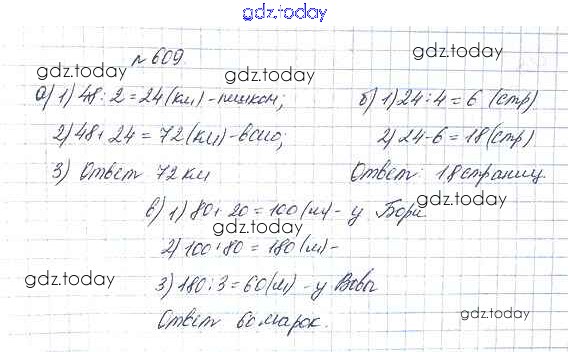 gdz.today
№ 609
gdz.today
gdz.today
gdz.today
а) 1) 48 : 2 = 24 (км) - пешком;
2) 48 + 24 = 72 (км) - всего;
3) Ответ 72 км
б) 1) 24 : 4 = 6 (стр)
2) 24 - 6 = 18 (стр)
Ответ: 18 страниц
gdz.today
в) 1) 80 + 20 = 100 (м) - у Бори
gdz.today
2) 100 + 80 = 180 (м) -
gdz.today
3) 180 : 3 = 60 (м) - у Вовы
Ответ 60 марок.
gdz.today